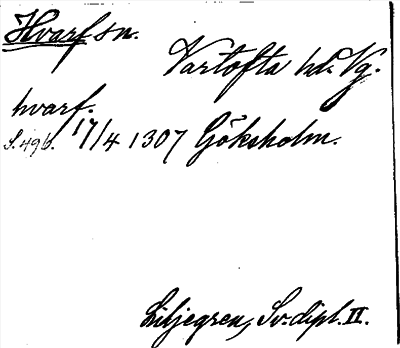 Hvarf sn.
Vartofta hd. Vg.
hvarf.
S. 496. 17/4 1307 Göksholm.
Liljegren, Sv. dipl. II.